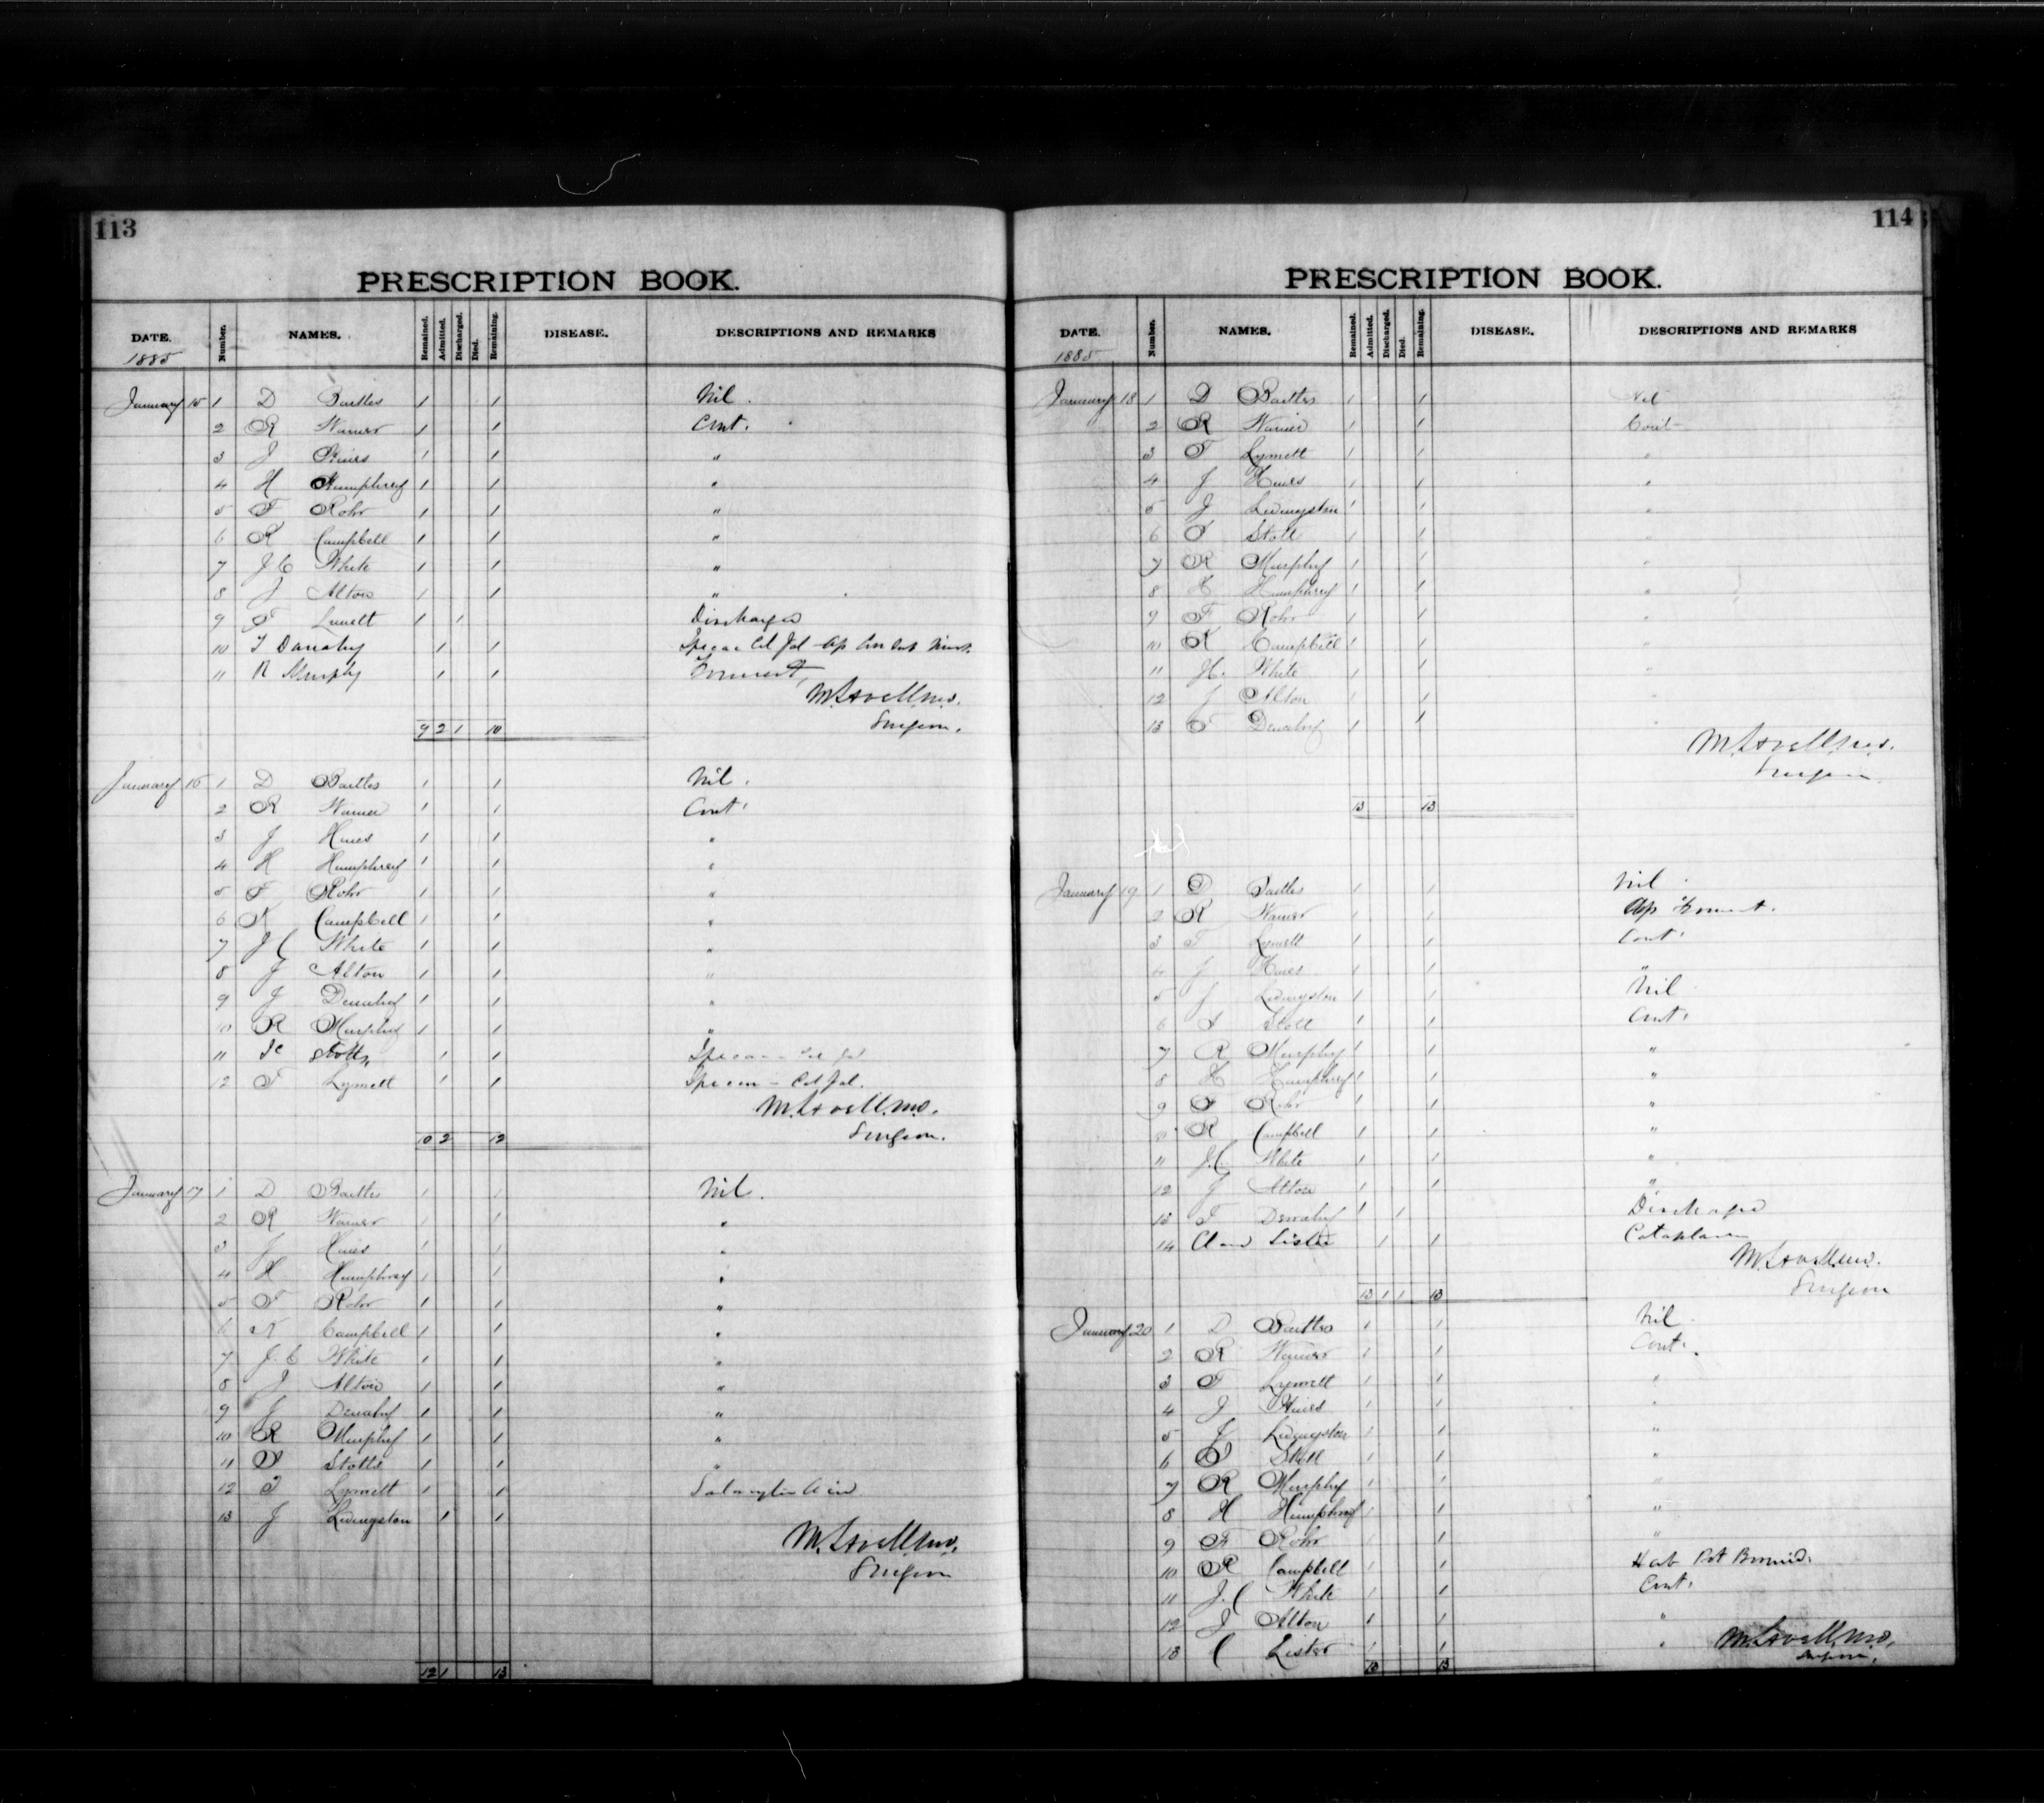 113
PRESCRIPTION BOOK.
DATE. Number. NAMES. Remained. Admitted. Discharged. Died. Remaining. DISEASE. DESCRIPTIONS AND REMARKS
1885
January 15 1 D Baitles 1 1 Nil.
2 R Warner 1 1 Cont.
3 J Hines 1 1 "
4 H Humphrey 1 1 "
5 F Rohr 1 1 "
6 R Campbell 1 1 "
7 J C White 1 1 "
8 J Alton 1 1 "
9 F Lunett 1 1 Discharged
10 T Danahy 1 1
11 R Murphy 1 1 Foment
M. Lavell M.D.
Surgeon.
9 2 1 10
January 16 1 D Baitles 1 1 Nil.
2 R Warner 1 1 Cont.
3 J Hines 1 1 "
4 H Humphrey 1 1 "
5 F Rohr 1 1 "
6 R Campbell 1 1 "
7 J C White 1 1 "
8 J Alton 1 1 "
9 J Denahy 1 1 "
10 R Murphy 1 1 "
11 Stotts 1 1
12 F Lymett 1 1
M. Lavell M.D.
10 2 12 Surgeon.
January 17 1 D Baitles 1 1 Nil.
2 R Warner 1 1 "
3 J Hines 1 1 "
4 H Humphrey 1 1 "
5 F Rohr 1 1 "
6 R Campbell 1 1 "
7 J. C White 1 1 "
8 J Alton 1 1 "
9 J Denahy 1 1 "
10 R Murphy 1 1 "
11 Stotts 1 1 "
12 F Lymett 1 1 Salicylic Acid
13 J Livingston 1 1
M. Lavell M.D.
Surgeon
12 1 13
114
PRESCRIPTION BOOK.
DATE. Number. NAMES. Remained. Admitted. Discharged. Died. Remaining. DISEASE. DESCRIPTIONS AND REMARKS
1885
January 18 1 D Baitles 1 1 Nil
2 R Warner 1 1 Cont
3 F Lymett 1 1 "
4 J Hines 1 1 "
5 J Livingston 1 1 "
6 Stott 1 1 "
7 R Murphy 1 1 "
8 H Humphrey 1 1 "
9 F Rohr 1 1 "
10 R Campbell 1 1 "
11 White 1 1 "
12 J Alton 1 1 "
13 T Denahy 1 1 "
M. Lavell M.D.
Surgeon
13 13
January 19 1 D Baitles 1 1 Nil
2 R Warner 1 1 Foment.
3 F Lymett 1 1 Cont.
4 J Hines 1 1 "
5 J Livingston 1 1 Nil
6 Stott 1 1 Cont.
7 R Murphy 1 1 "
8 H Humphrey 1 1 "
9 F Rohr 1 1 "
10 R Campbell 1 1 "
11 J. C White 1 1 "
12 J Alton 1 1 "
13 T Denahy 1 1 Discharged
14 Lister 1 1 Cataplasm
M. Lavell M.D.
13 1 1 13 Surgeon
January 20 1 D Baitles 1 1 Nil
2 R Warner 1 1 Cont.
3 F Lymett 1 1 "
4 J Hines 1 1 "
5 J Livingston 1 1 "
6 Stott 1 1 "
7 R Murphy 1 1 "
8 H Humphrey 1 1 "
9 F Rohr 1 1 "
10 R Campbell 1 1 Pot Bromid.
11 J. C White 1 1 Cont.
12 J Alton 1 1 "
13 C Lister 1 1 " M. Lavell M.D.
13 13 Surgeon.